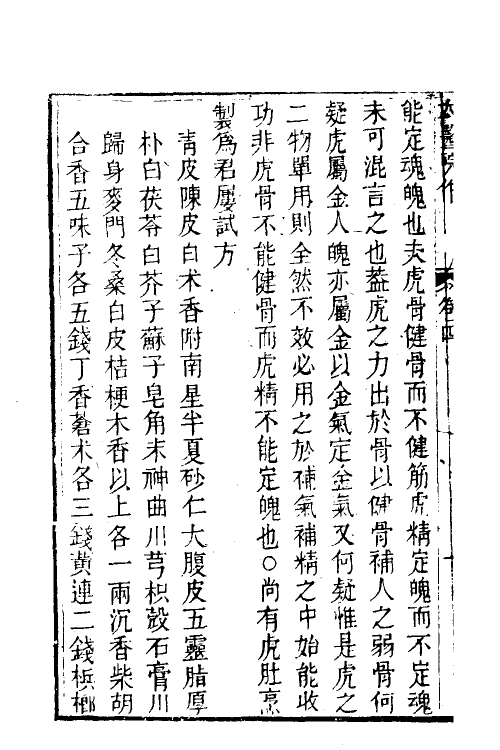 能定魂魄也夫虎骨健骨而不健筋虎精定魄而不定魂
未可混言之也蓋虎之力出於骨以健骨補人之弱骨何
疑虎屬金人魄亦屬金以金氣定金氣又何疑惟是虎之
二物單用則全然不效必用之於補氣補精之中始能收
功非虎骨不能健骨而虎精不能定魄也○尚有虎肚烹
製爲君屢試方
青皮陳皮白术香附南星半夏砂仁大腹皮五靈脂厚
朴白茯苓白芥子蘇子皂角末神曲川芎枳殼石膏川
歸身麥門冬桑白皮桔梗木香以上各一兩沉香柴胡
合香五味子各五錢丁香蒼术各三錢黃連二錢梹榔